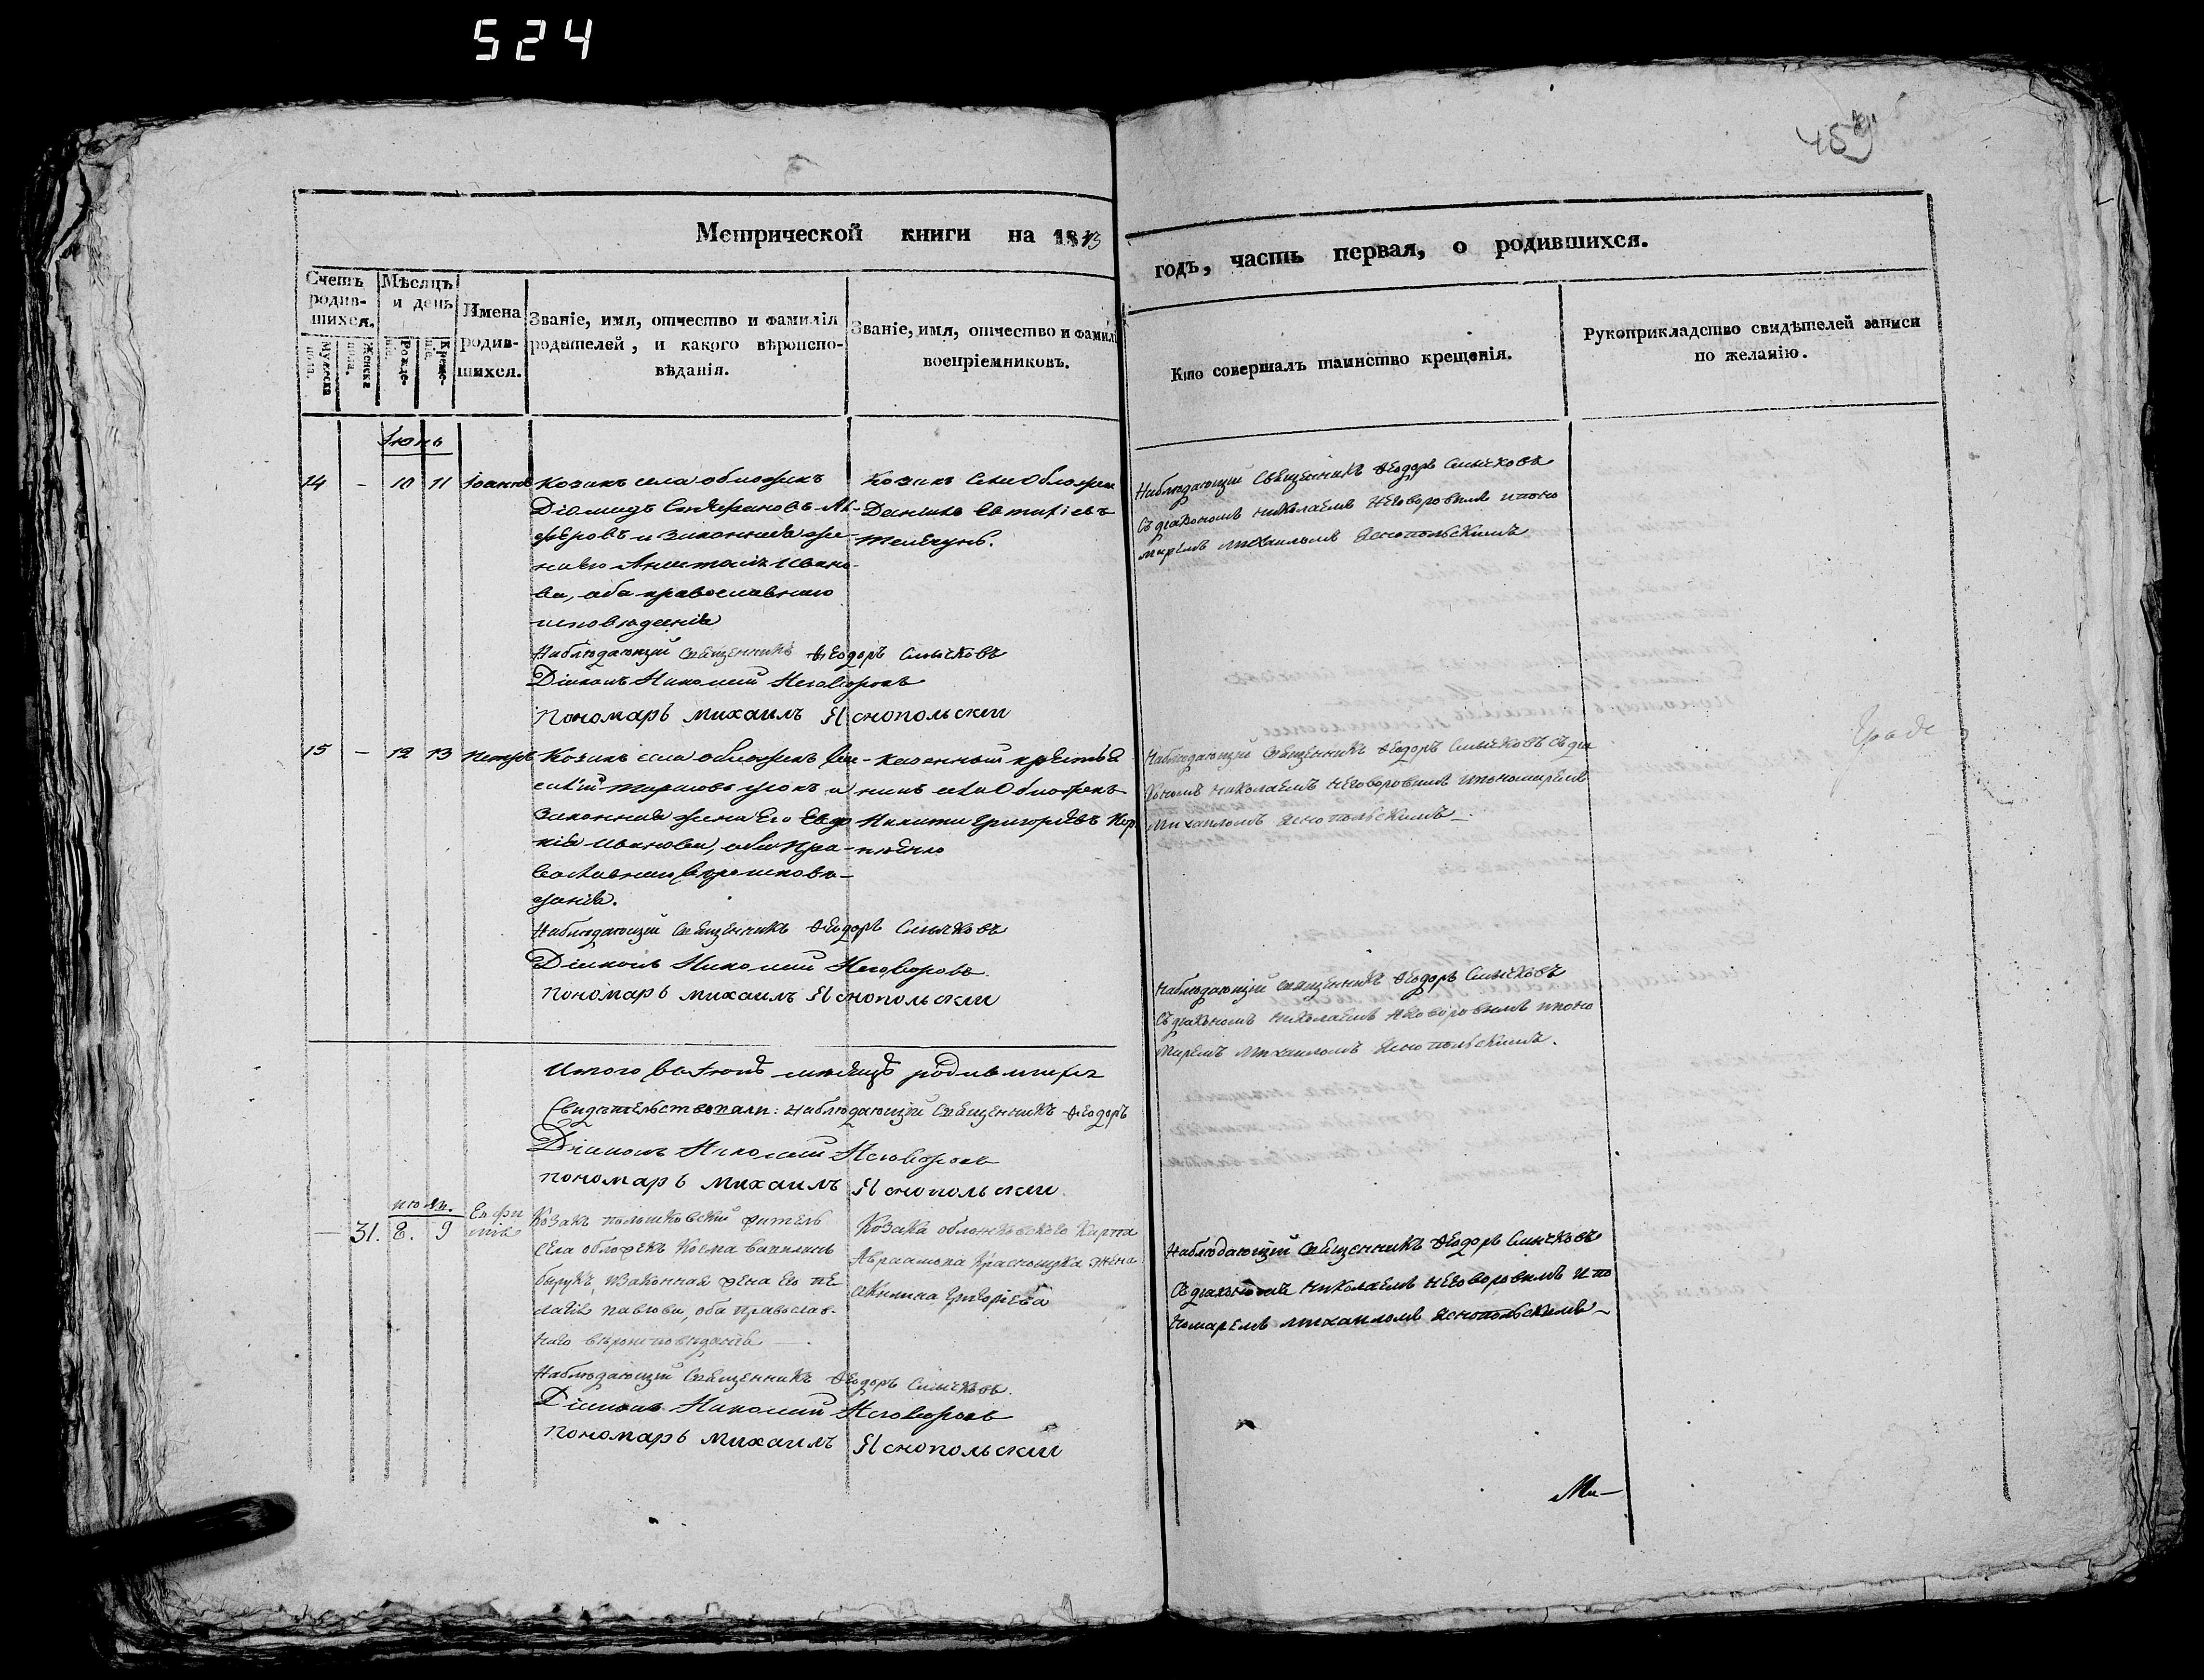 524
459
Метрической книги на 1843
годъ, часть первая, о родившихся.
Счетъ родив-шихся.
Мѣсяцъ и день
Имена родив-шихся.
Званіе, имя, отчество и фамилія родителей, и какого вѣроиспо-вѣданія.
Званіе, имя, отчество и фамил
воспріемниковъ.
Кто совершалъ таинство крещенія.
Рукоприкладство свидѣтелей записи по желанію.
Мужеска пола.
Женска пола.
Рожде-
Креще-
Іюнь
14 - 10 11 Іоаннъ
Козакъ села обложекъ
законная же-
Иванο-
ва, оба православнаго
исповѣданія
Наблюдающій священникъ Ѳеодоръ Смычковъ
Діаконъ Николай Неговоровъ
Пономаръ Михаилъ Яснопольскій
Козакъ села Обложекъ
Наблюдающій Священникъ Ѳеодоръ Смычковъ
съ діакономъ Николаемъ Неговоровымъ и поно
маремъ Михаиломъ Яснопольскимъ
15 - 12 13 Петръ
Козакъ села обложекъ
законная жена его Евдо
кія Иванова, оба пра-
вославнаго вѣроисповѣ-
данія.
Наблюдающій священникъ Ѳеодоръ Смычковъ
Діаконъ Николай Неговоровъ
Пономаръ Михаилъ Яснопольскій
казенный крестья
нинъ села Обложекъ
Никита Григоріевъ
Наблюдающій священникъ Ѳеодоръ Смычковъ съ діа
кономъ Николаемъ Неговоровымъ и пономаремъ
Михаиломъ Яснопольскимъ
Итого въ Іюнѣ мѣсяцѣ родившихся
Свидѣтельствовали: Наблюдающій священникъ Ѳеодоръ
Діаконъ Николай Неговоровъ
пономаръ Михаилъ Яснопольскій
Наблюдающій священникъ Ѳеодоръ Смычковъ
съ діакономъ Николаемъ Неговоровымъ и поно
маремъ Михаиломъ Яснопольскимъ.
июль.
- 31. 8. 9
Евфи
мія
Козакъ житель
села обложекъ Косма
и законная жена его Пе
лагія Павлова, оба православ-
наго вѣроисповѣданія
Наблюдающій Священникъ Ѳеодоръ Смычковъ.
Діаконъ Николай Неговоровъ
Пономаръ Михаилъ Яснопольскій
Козака обложковскаго Карпа
Авраамова Красношука жена
Акилина Григоріева
Наблюдающій священникъ Ѳеодоръ Смычковъ
съ діакономъ Николаемъ Неговоровымъ и по
номаремъ Михаиломъ Яснопольскимъ